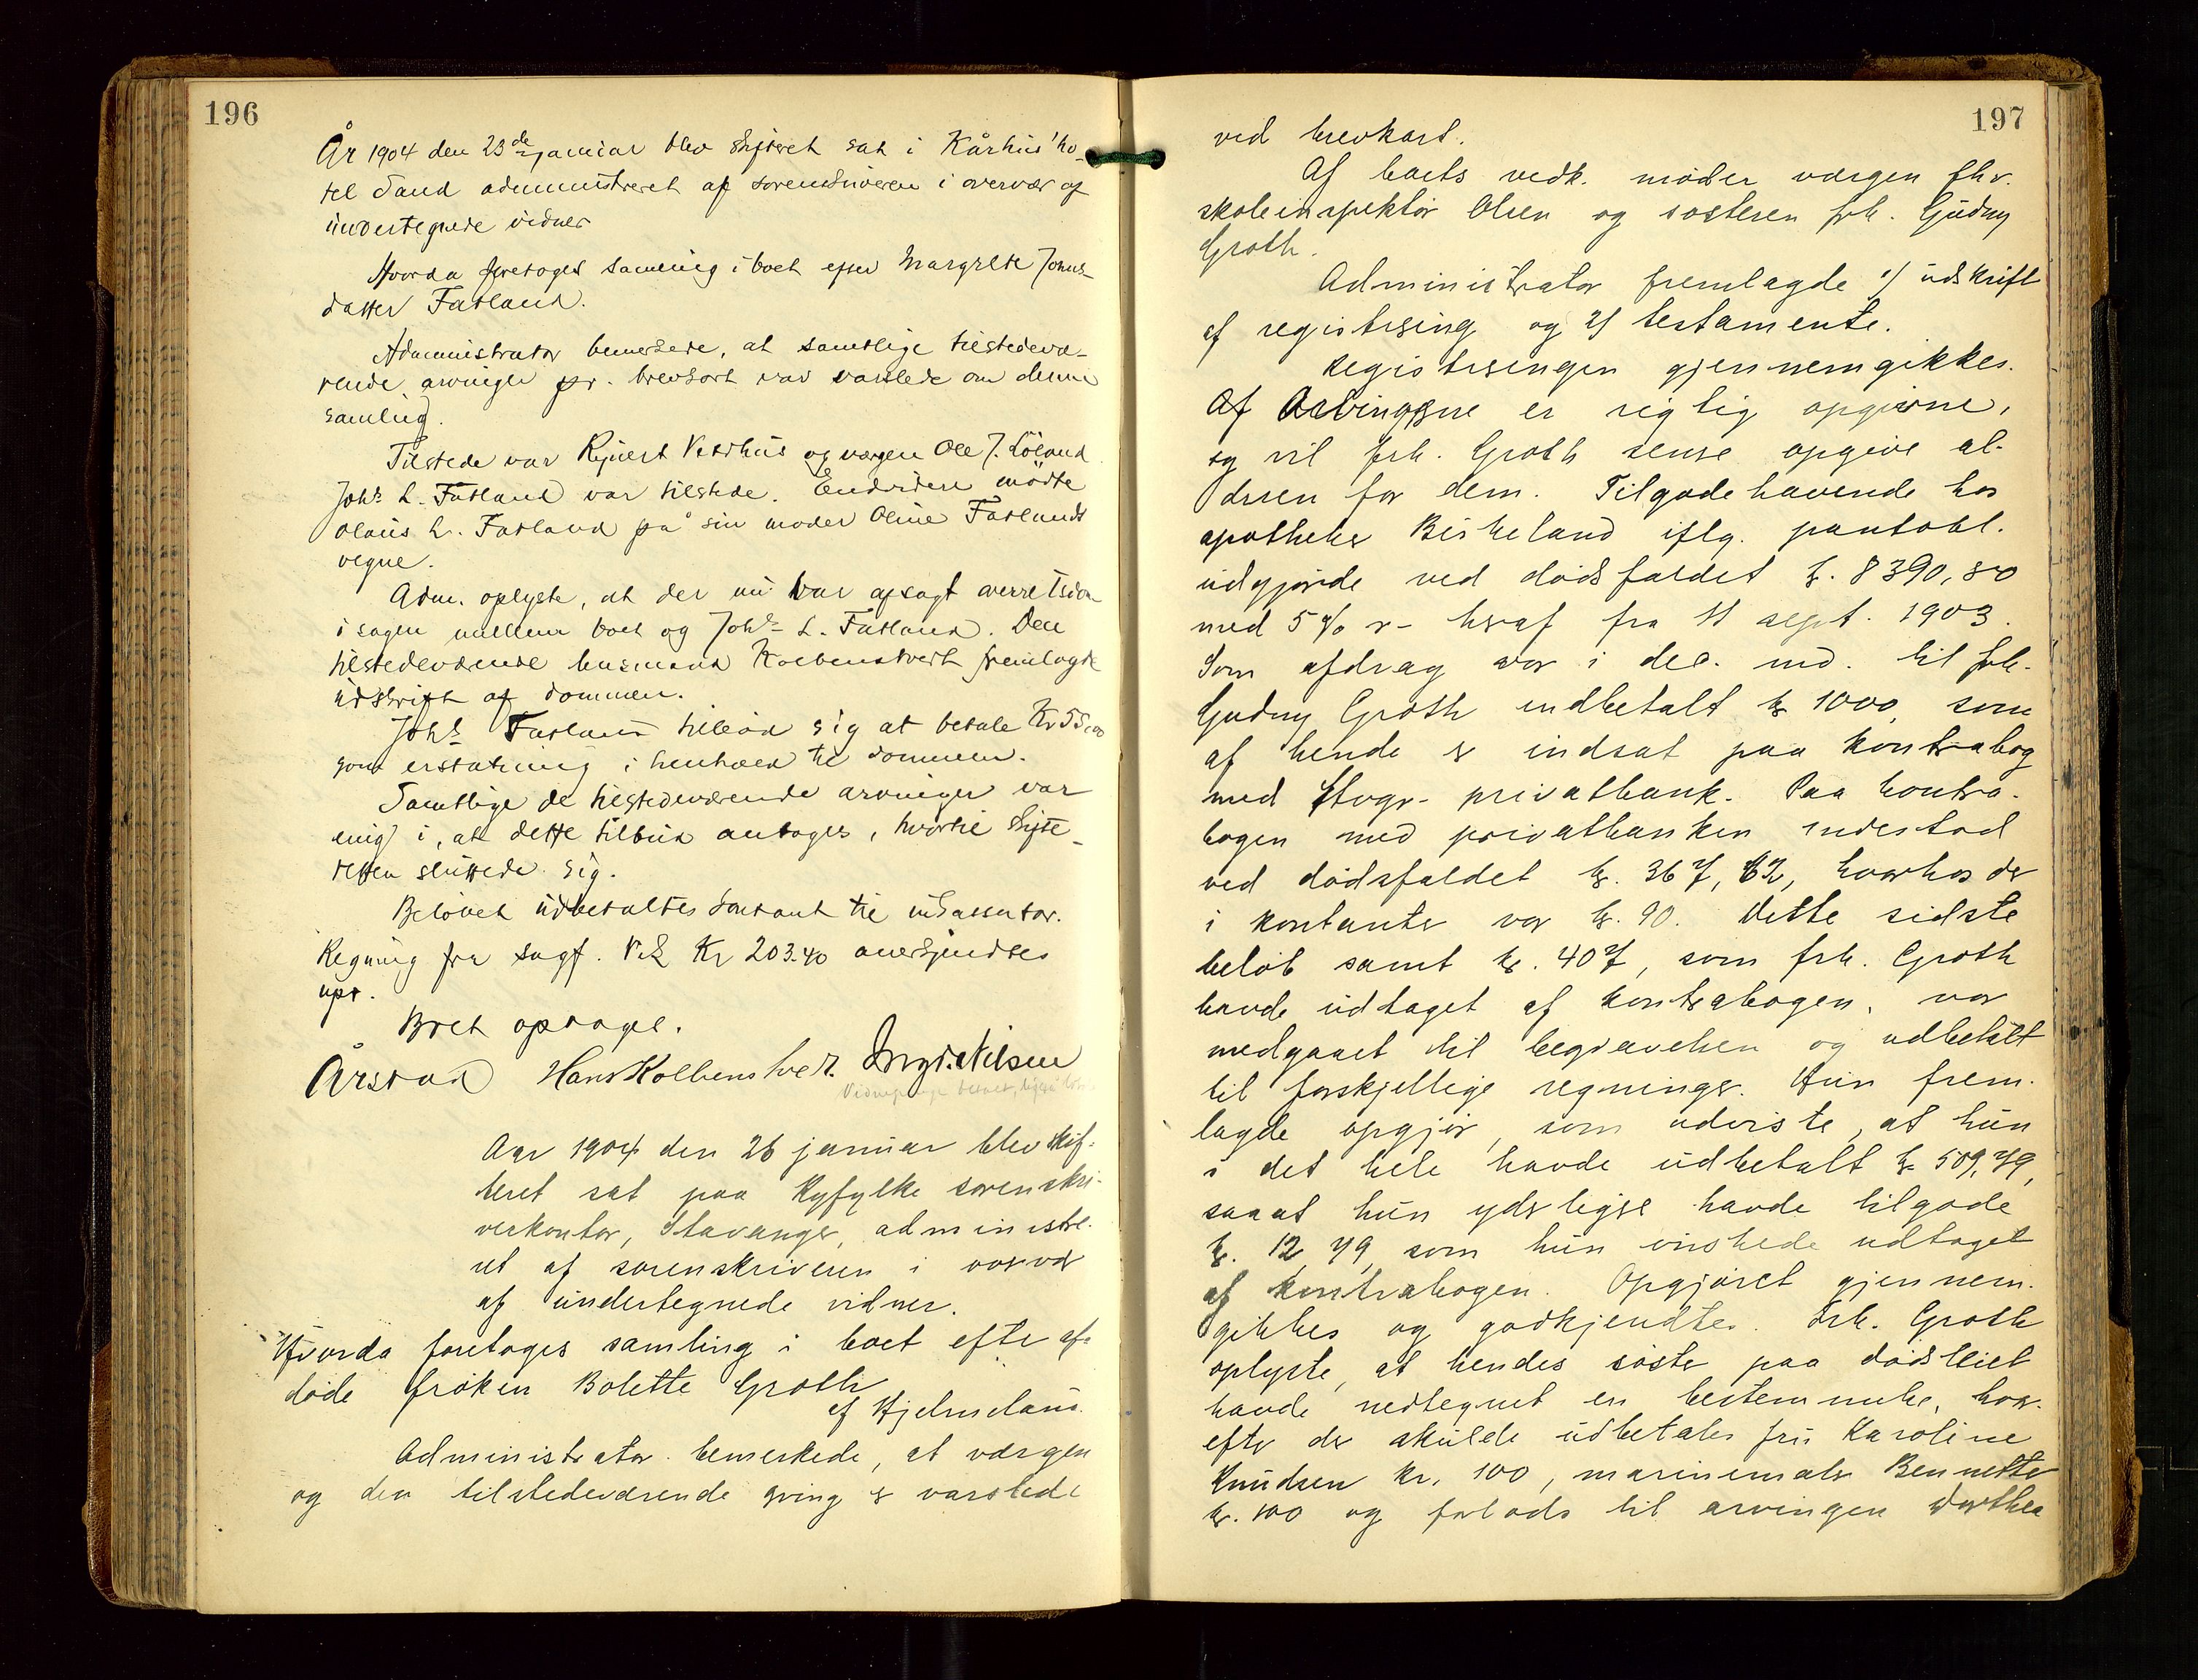 196
År 1904 den 23de januar blev skifteret sat i Kårhus' ho-
tel Sand administreret af sorenskriveren i overvær af
undertegnede vidner
Hvorda foretoges samling i boet efter Margrete Johns-
datter Fatland.
Administrator bemerkede, at samtlige tilstedevæ-
rende arvinger pr. brevkort var varslede om denne
samling.
Tilstede var Vetrhus og værgen Ole J. Löland
Johs L. Fatland var tilstede. Endvidere mödte
Olaus L. Fatland på sin moder Oline Fatlands
vegne.
Adm. oplyste, at der nu var afsagt overretsdom
i sagen mellem boet og Johs L. Fatland. Den
tilstedeværende lensmand Kolbenstvedt fremlagde
udskrift af dommen.
Johs Fatland tilböd sig at betale Kr 55,00
som erstatning i henhold til dommen.
Samtlige de tilstedeværende arvinger var
enig i, at dette tilbud antoges, hvortil skifte-
retten sluttede sig.
Belöbet udbetaltes kontant til inkassator.
Regning fra sagf. Kr 203.40 anerkjendtes
Boet optages.
Årstad Hans Kolbenstvedt. Nilsen
Aar 1904 den 26 januar blev skif-
teret sat paa Ryfylke sorenskri-
verkontor, Stavanger, administre-
ret af sorenskriveren i overvær
af undertegnede vidner.
Hvorda foretoges samling i boet efter af-
døde frøken Bolette Groth
af Hjelmeland.
Administrator bemerkede, at værgen
og den tilstedeværende arving er varslede
197
ved brevkort.
Af boets vedk. møder værgen fhv.
skoleinspektør Olsen og søsteren frk. Gudny
Groth.
Administrator fremlagde 1/ udskrift
af registrering og 2/ testamente.
Registreringen gjennemgikkes.
Af Arvingerne er rigtig opgivne,
og vil frk. Groth senere opgive al-
deren for dem. Tilgodehavende hos
apotheker Birkeland iflg. pantobl.
udgjorde ved dødsfaldet kr. 8390,80
med 5 % r- heraf fra 11 sept. 1903.
Som afdrag var i dec. md. til frk.
Gudny Groth indbetalt kr 1000, som
af hende er indsat paa kontrabog
med Stvgr- privatbank. Paa kontra-
bogen med privatbanken indestod
ved dødsfaldet kr. 367,62, hvorhos der
i kontanter var kr. 90. Dette sidste
beløb samt kr. 407, som frk. Groth
havde udtaget af kontrabogen, var
medgaaet til begravelsen og udbetalt
til forskjellige regninger. Hun frem-
lagde opgjør, som udviste, at hun
i det hele havde udbetalt kr 509,79,
saaat hun yderligere havde tilgode
kr. 12,79, som hun ønskede udtaget
af kontrabogen. Opgjøret gjennem-
gikkes og godkjendtes. Frk. Groth
oplyste, at hendes søster paa dødsleiet
havde nedtegnet en bestemmelse, hvor-
efter der skulde udbetales fru Karoline
Knudsen kr. 100, marinemaler Bennetter
kr. 100 og forlods til arvingen Dorthea